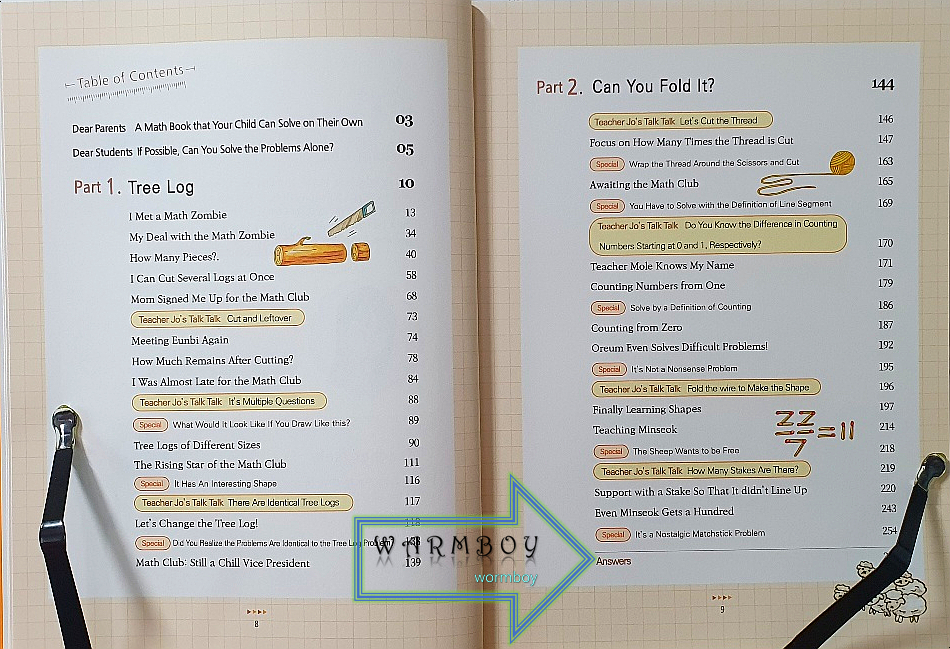 Table of Contents
Dear Parents A Math Book that Your Child Can Solve on Their Own 03
Dear Students If Possible, Can You Solve the Problems Alone? 05
Part 1. Tree Log 10
I Met a Math Zombie 13
My Deal with the Math Zombie 34
How Many Pieces?. 40
I Can Cut Several Logs at Once 58
Mom Signed Me Up for the Math Club 68
Teacher Jo's Talk Talk Cut and Leftover 73
Meeting Eunbi Again 74
How Much Remains After Cutting? 78
I Was Almost Late for the Math Club 84
Teacher Jo's Talk Talk It's Multiple Questions 88
Special What Would It Look Like If You Draw Like this? 89
Tree Logs of Different Sizes 90
The Rising Star of the Math Club 111
Special It Has An Interesting Shape 116
Teacher Jo's Talk Talk There Are Identical Tree Logs 117
Let's Change the Tree Log! 118
Special Did You Realize the Problems Are Identical to the Tree Log Problem
Math Club: Still a Chill Vice President 139
8
Part 2. Can You Fold It? 144
Teacher Jo's Talk Talk Let's Cut the Thread 146
Focus on How Many Times the Thread is Cut 147
Special Wrap the Thread Around the Scissors and Cut 163
Awaiting the Math Club 165
Special You Have to Solve with the Definition of Line Segment 169
Teacher Jo's Talk Talk Do You Know the Difference in Counting
Numbers Starting at 0 and 1, Respectively? 170
Teacher Mole Knows My Name 171
Counting Numbers from One 179
Special Solve by a Definition of Counting 186
Counting from Zero 187
Oreum Even Solves Difficult Problems! 192
Special It's Not a Nonsense Problem 195
Teacher Jo's Talk Talk Fold the wire to Make the Shape 196
Finally Learning Shapes 197
Teaching Minseok 214
Special The Sheep Wants to be Free 218
Teacher Jo's Talk Talk How Many Stakes Are There? 219
Support with a Stake So That It didn't Line Up 220
Even Minseok Gets a Hundred 243
Special It's a Nostalgic Matchstick Problem 254
Answers
9
WARMBOY
wormboy